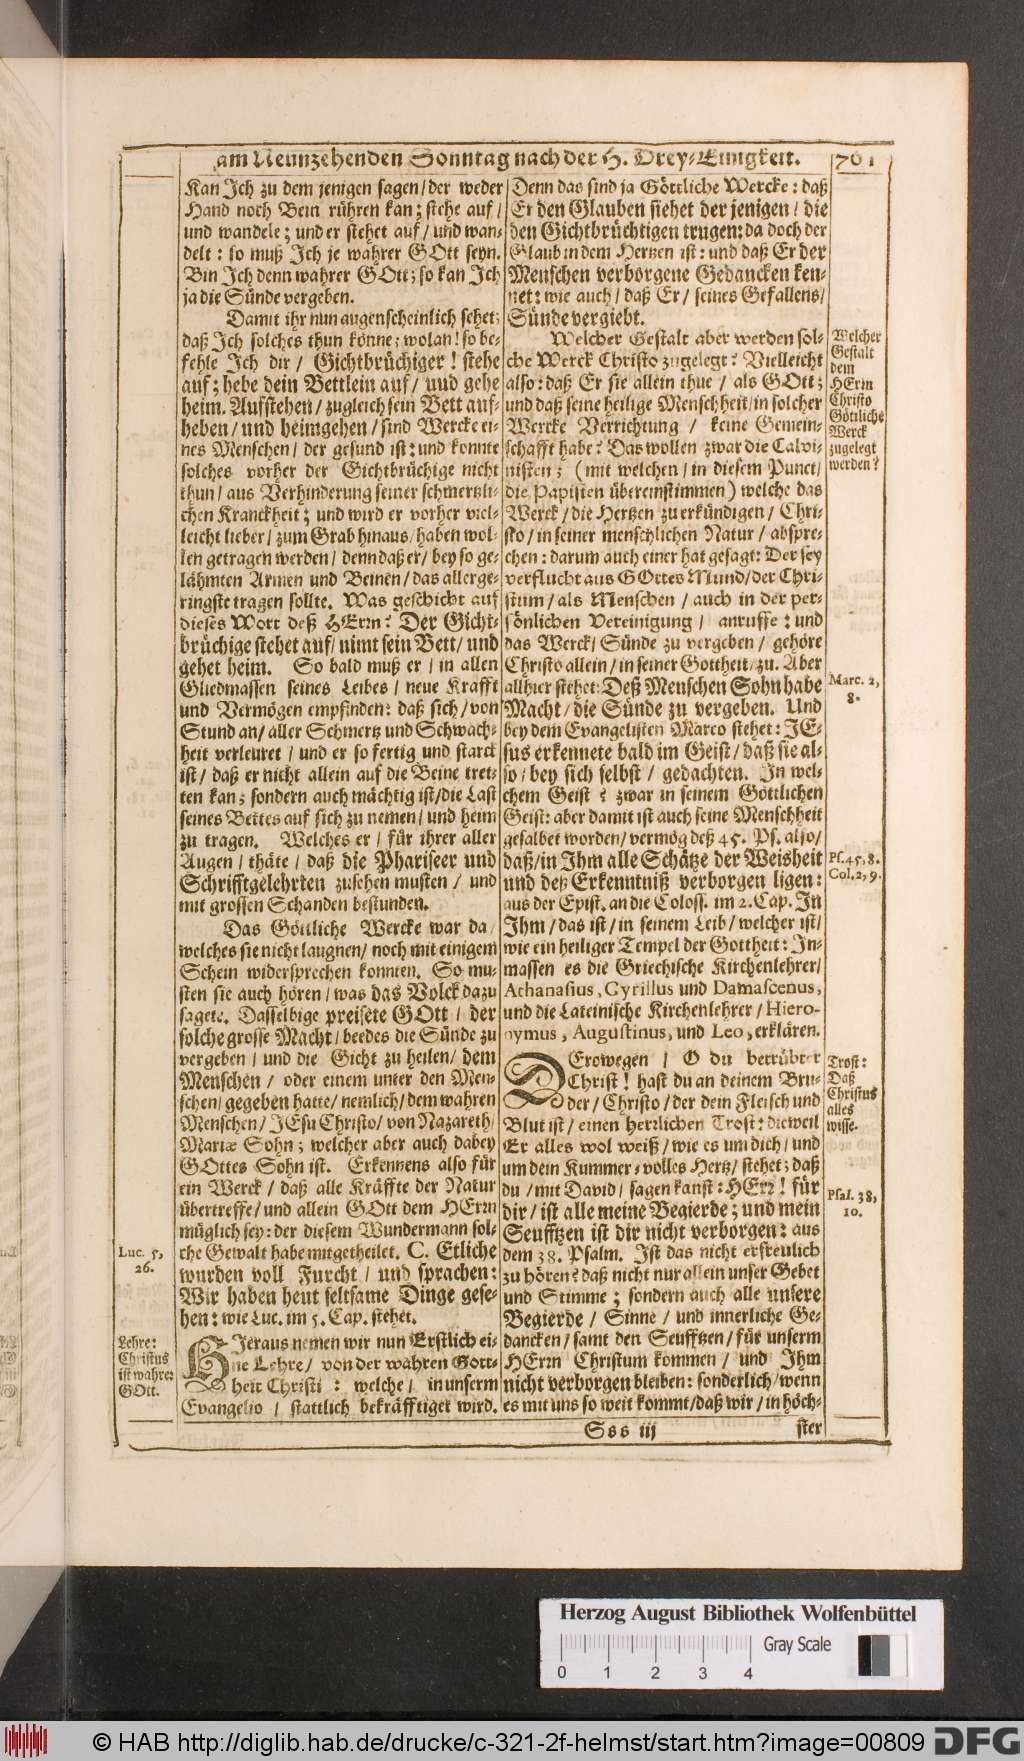 am Neunzehenden Sonntag nach der H. Drey-Einigkeit. 761
Kan Ich zu dem jenigen sagen/ der weder
Hand noch Bein rühren kan; stehe auf/
und wandele; und er stehet auf/ und wan-
delt: so muß Ich je wahrer GOtt seyn.
Bin Ich denn wahrer GOtt; so kan Ich
ja die Sünde vergeben.
Damit ihr nun augenscheinlich sehet;
daß Ich solches thun könne; wolan! so be-
fehle Ich dir/ Gichtbrüchiger! stehe
auf; hebe dein Bettlein auf/ und gehe
heim. Aufstehen/ zugleich sein Bett auf-
heben/ und heimgehen/ sind Wercke ei-
nes Menschen/ der gesund ist: und konnte
solches vorher der Gichtbrüchige nicht
thun/ aus Verhinderung seiner schmertzli-
chen Kranckheit; und wird er vorher viel-
leicht lieber/ zum Grab hinaus/ haben wol-
len getragen werden/ denn daß er/ bey so ge-
lähmten Armen und Beinen/ das allerge-
ringste tragen sollte. Was geschicht auf
dieses Wort deß HErrn? Der Gicht-
brüchige stehet auf/ nimt sein Bett/ und
gehet heim. So bald muß er/ in allen
Gliedmassen seines Leibes/ neue Krafft
und Vermögen empfinden: daß sich/ von
Stund an/ aller Schmertz und Schwach-
heit verleuret/ und er so fertig und starck
ist/ daß er nicht allein auf die Beine tret-
ten kan; sondern auch mächtig ist/ die Last
seines Bettes auf sich zu nemen/ und heim
zu tragen. Welches er/ für ihrer aller
Augen/ thäte/ daß die Phariseer und
Schrifftgelehrten zusehen musten/ und
mit grossen Schanden bestunden.
Das Göttliche Wercke war da/
welches sie nicht laugnen/ noch mit einigem
Schein widersprechen konnten. So mu-
sten sie auch hören/ was das Volck dazu
sagete. Dasselbige preisete GOtt/ der
solche grosse Macht/ beedes die Sünde zu
vergeben/ und die Gicht zu heilen/ dem
Menschen/ oder einem unter den Men-
schen/ gegeben hatte/ nemlich/ dem wahren
Menschen/ JEsu Christo/ von Nazareth/
Mariæ Sohn; welcher aber auch dabey
GOttes Sohn ist. Erkennens also für
ein Werck/ daß alle Kräffte der Natur
übertreffe/ und allein GOtt dem HErrn
müglich sey: der diesem Wundermann sol-
che Gewalt habe mitgetheilet. C. Etliche
wurden voll Furcht/ und sprachen:
Wir haben heut seltsame Dinge gese-
hen: wie Luc. im 5. Cap. stehet.
Luc. 5,
26.
Lehre:
Christus
ist wahrer
GOtt.
HJeraus nemen wir nun Erstlich ei-
ne Lehre/ von der wahren Gott-
heit Christi: welche/ in unserm
Evangelio/ stattlich bekräfftiget wird.
Denn das sind ja Göttliche Wercke: daß
Er den Glauben siehet der jenigen/ die
den Gichtbrüchtigen trugen: da doch der
Glaub in dem Hertzen ist: und daß Er der
Menschen verborgene Gedancken ken-
net: wie auch/ daß Er/ seines Gefallens/
Sünde vergiebt.
Welcher Gestalt aber werden sol-
che Werck Christo zugelegt? Vielleicht
also: daß Er sie allein thue/ als GOtt;
und daß seine heilige Menschheit/ in solcher
Wercke Verrichtung/ keine Gemein-
schafft habe? Das wollen zwar die Calvi-
nisten; (mit welchen/ in diesem Punct/
die Papisten übereinstimmen) welche das
Werck/ die Hertzen zu erkündigen/ Chri-
sto/ in seiner menschlichen Natur/ abspre-
chen: darum auch einer hat gesagt: Der sey
verflucht aus GOttes Mund/ der Chri-
stum/ als Menschen/ auch in der per-
sönlichen Vereinigung/ anruffe: und
das Werck/ Sünde zu vergeben/ gehöre
Christo allein/ in seiner Gottheit/ zu. Aber
allhier stehet: Deß Menschen Sohn habe
Macht/ die Sünde zu vergeben. Und
bey dem Evangelisten Marco stehet: JE-
sus erkennete bald im Geist/ daß sie al-
so/ bey sich selbst/ gedachten. In wel-
chem Geist? zwar in seinem Göttlichen
Geist: aber damit ist auch seine Menschheit
gesalbet worden/ vermög deß 45. Ps. also/
daß/ in Ihm alle Schätze der Weisheit
und deß Erkenntniß verborgen ligen:
aus der Epist. an die Coloss. im 2. Cap. In
Ihm/ das ist/ in seinem Leib/ welcher ist/
wie ein heiliger Tempel der Gottheit: In-
massen es die Griechische Kirchenlehrer/
Athanasius, Cyrillus und Damascenus,
und die Lateinische Kirchenlehrer/ Hiero-
nymus, Augustinus, und Leo, erklären.
DErowegen/ O du betrübter
Christ! hast du an deinem Bru-
der/ Christo/ der dein Fleisch und
Blut ist/ einen herrlichen Trost: dieweil
Er alles wol weiß/ wie es um dich/ und
um dein Kummer-volles Hertz/ stehet; daß
du/ mit David/ sagen kanst: HErr! für
dir/ ist alle meine Begierde; und mein
Seufftzen ist dir nicht verborgen: aus
dem 38. Psalm. Ist das nicht erfreulich
zu hören? daß nicht nur allein unser Gebet
und Stimme; sondern auch alle unsere
Begierde/ Sinne/ und innerliche Ge-
dancken/ samt den Seufftzen/ für unserm
HErrn Christum kommen/ und Ihm
nicht verborgen bleiben: sonderlich/ wenn
es mit uns so weit kommt/ daß wir/ in höch-
Welcher
Gestalt
dem
HErrn
Christo
Göttliche
Werck
zugelegt
werden?
Marc. 2,
8.
Ps. 45, 8.
Col. 2, 9.
Trost:
Daß
Christus
alles
wisse.
Psal. 38,
10.
Sss iij ster
Herzog August Bibliothek Wolfenbüttel
Gray Scale
0 1 2 3 4
© HAB http://diglib.hab.de/drucke/c-321-2f-helmst/start.htm?image=00809 DFG